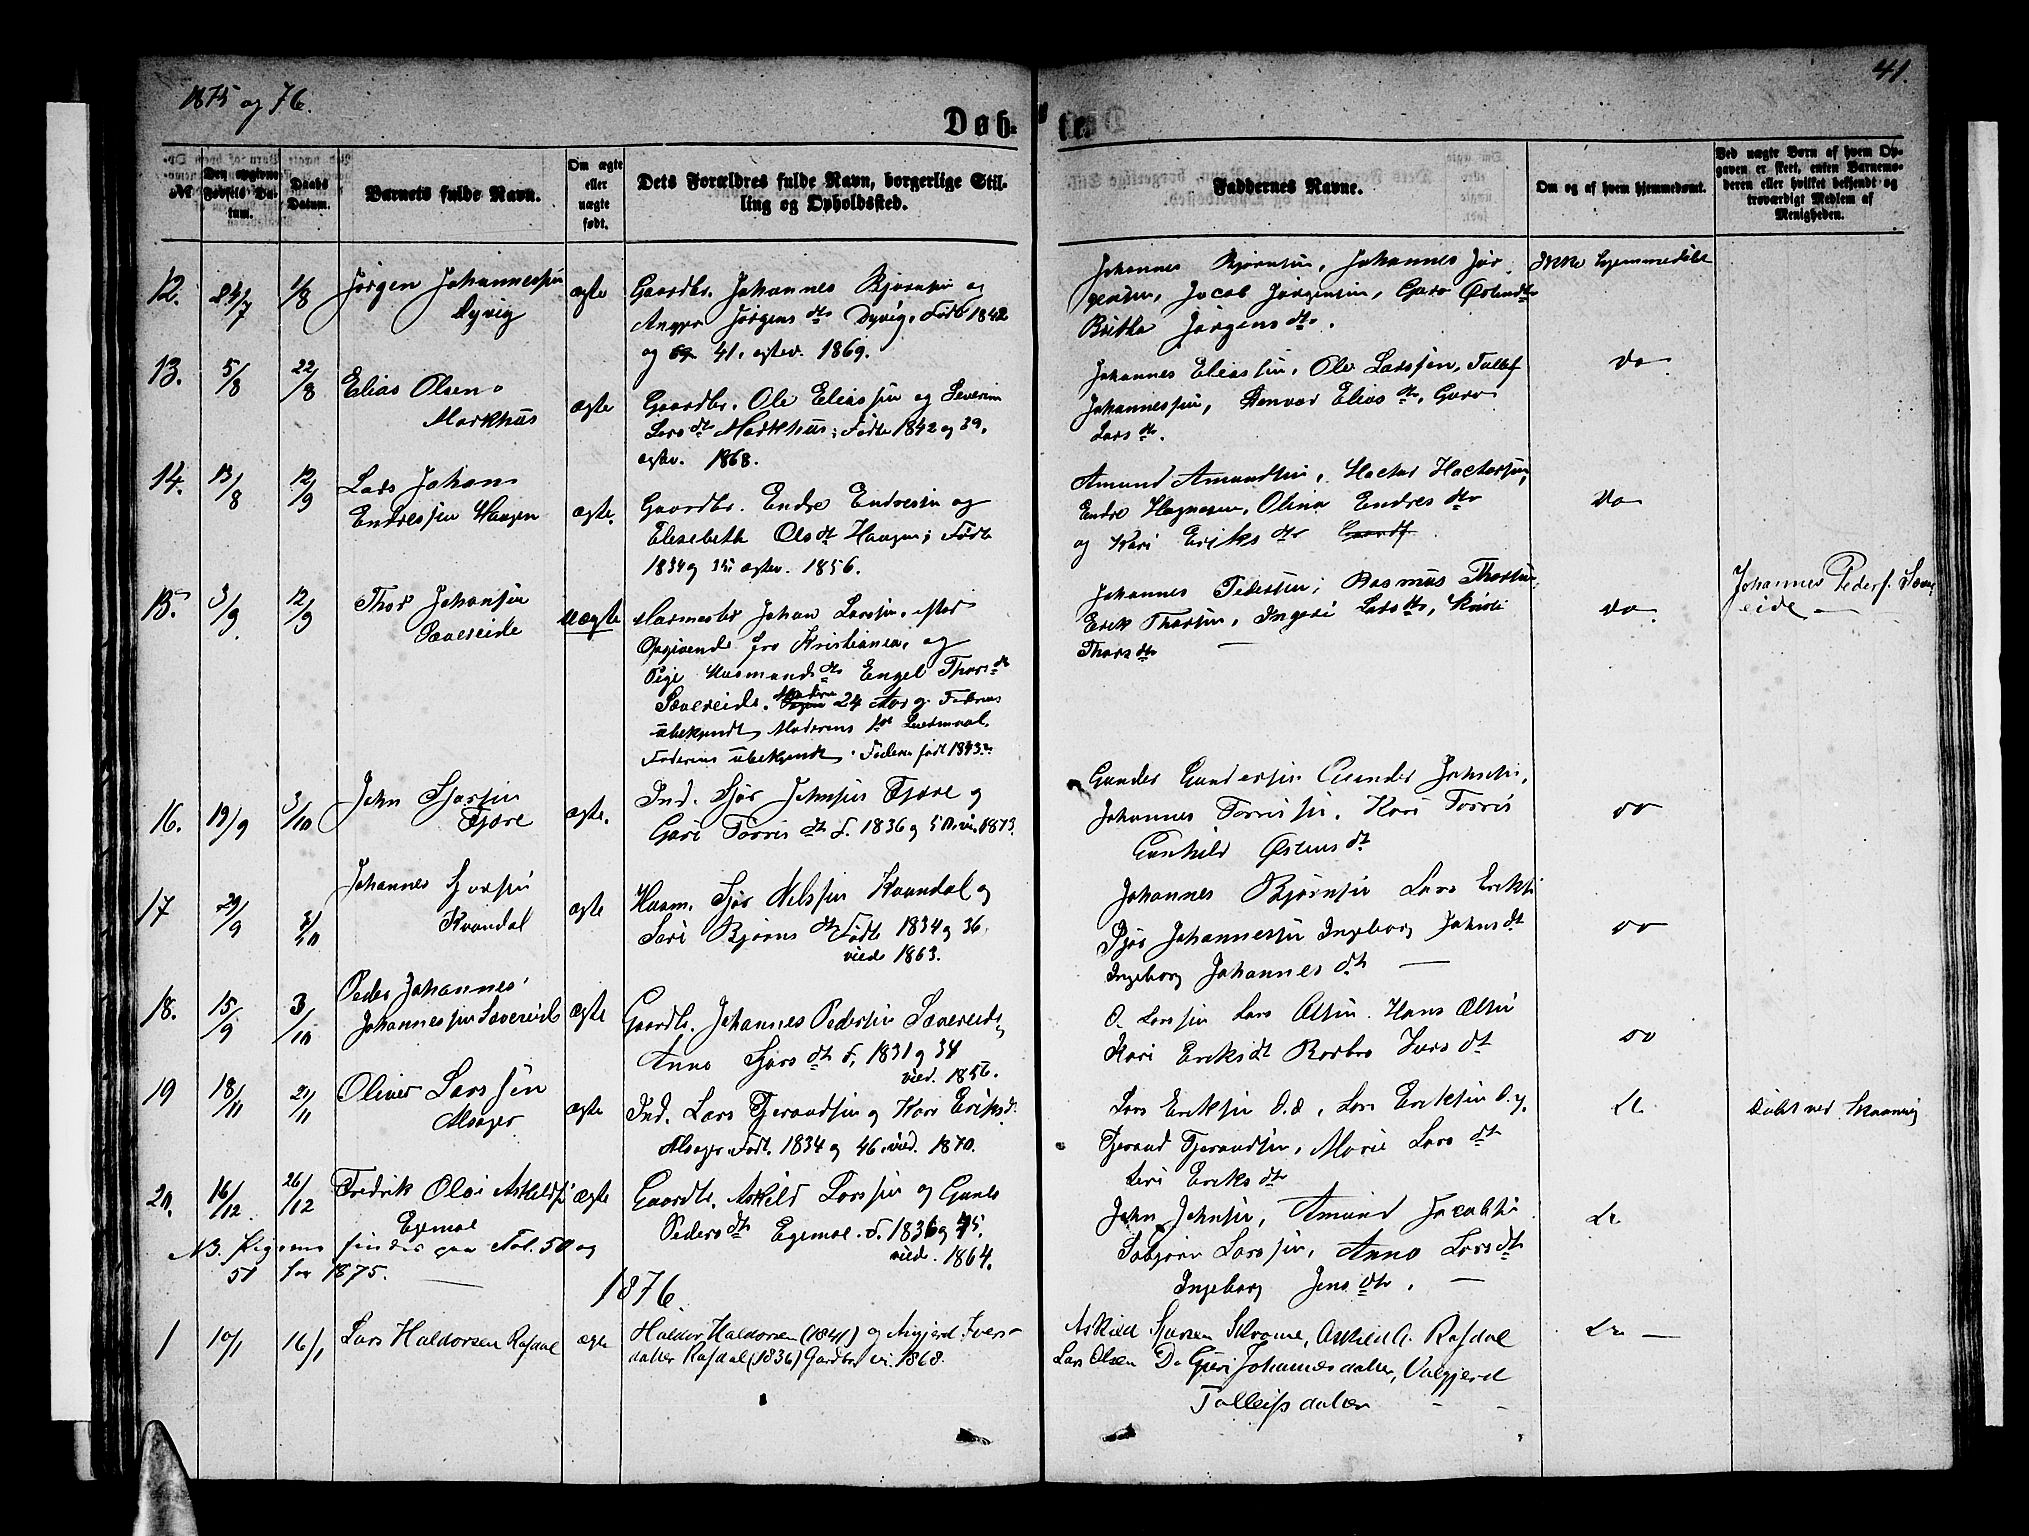 1875 og 76.
41.
Døb-
te.
№
Den opgivne Fødsels Da-
tum.
Daabs
Datum.
Barnets fulde Navn.
Om ægte
eller
uægte
født.
Dets Forældres fulde Navn, borgerlige Stil-
ling og Opholdssted.
Faddernes Navne.
Om og af hvem hjemmedøbt.
Ved uægte Børn af hvem Op-
gaven er skeet, enten Barnemo-
deren eller hvilket bekjendt og
troværdigt Medlem af
Menigheden.
12. 24/7 1/8 Jørgen Johannessen
Dyvig
ægte
Gaardbr. Johannes Bjørnsen og
Jørgens dtr Dyvig, Født 1842
og 41, egtev. 1869.
Johannes Bjørnsen, Johannes Jør-
gensen, Jacob Jørgensen, Guro Østensdtr
Britha Jørgens dtr.
Ikke hjemmedøbt
13. 5/8 22/8 Elias Olsen
Markhus
ægte
Gaardbr. Ole Eliassen og Severine
Lars dt Markhus; Fødte 1842 og 39,
egtev. 1868.
Johannes Eliassen, Ole Larssen, Tollef
Johannessen, Elias dtr, Guro
Lars dtr.
do
14. 13/8 12/9 Lars Johan
Endressen Haugen
ægte.
Gaardbr. Endre Endresen og
Elisabeth Ols dt Haugen; Fødte
1834 og 35; egtev. 1856.
Amund Amundsen, Hactor Hactorsen,
Endre Hegnesen, Olina Endres dtr
og Kari Eriks dtr
do
15. 3/9 12/9 Thor Johansen
Sævereide
uægte
Johan Larssen, efter
Opgivende fra Kristiania, og
Pige Husmands dtr Engel Thors dt
Sævereide. Moderen 24 Aar g. Faderens
ubekjendt, Moderens 1ste Leiermaal.
Faderens ubekjendt. Faderen født 1843.
Johannes Pedersen, Rasmus Thorsen,
Erik Thorsen, Ingeri Lars dtr, Kristi
Thors dtr —
do.
Johannes Peders. Sæver-
eide —
16. 19/9 3/10 John Sjursen
Fjære
ægte.
Ind. Sjur Johnsen Fjære og
Guri Torris dt f. 1836 og 50. vi. 1873.
Gunder Gundersen Gunder Johnsen,
Johannes Torrissen, Kari Torris
Gunhild Østens dt
do
17 29/9 3/10 Johannes Sjursen
Kvandal
ægte
Husm. Sjur Nilssen Kvandal og
Siri Bjørns dt Fødte 1834 og 36.
viede 1863.
Johannes Bjørnsen Lars Eriksen
Sjur Johannessen Ingeborg Johns dt
Ingeborg Johannes dt —
do
18. 15/9 3/10 Peder Johannes
Johannessen Sævereide
ægte
Gaardbr. Johannes Pedersen Sævereide,
Anna Sjurs dt f. 1831 og 34
vied. 1856.
O. Larssen Lars Olsen. Hans Olsen
Kari Eriks dt Barbro Ivers dt
do
19 18/11 21/11 Oliver Larssen
Alsager
ægte
Ind. Lars Tjerandsen og Kari Eriksd.
Alsager. Født. 1834 og 46. vied. 1870.
Lars Eriksen d.æ, Lars Eriksen d.y.
Tjerand Tjerandsen, Marie Lars dt
Siri Eriks dtr
do
Døbt ved Skaanevig
20. 16/12 26/12 Fredrik Olai Askilds.
Egemoe
ægte
Gaardbr. Askild Larssen og Gunla
Peders dt Egemoe. f. 1836 og 45.
viede. 1864.
John Johnsen, Amund Jacobsen.
Larssen, Anna Lars dt
Ingeborg Jens dtr. —
do
NB. Pigerne findes paa Fol. 50 og
51 for 1875.
1876.
1 10/1 16/1 Lars Haldorsen Rafdal
ægte
Haldor Haldorsen (1841) og Avgjerd Ivers-
datter Rafdal (1836) Gardbr. vi. 1868.
Askild Sjursen Skrome, Askild A. Rafdal
Lars Olsen Do Guri Johannesdatter, Valgjerd
Tolleifsdatter
do —